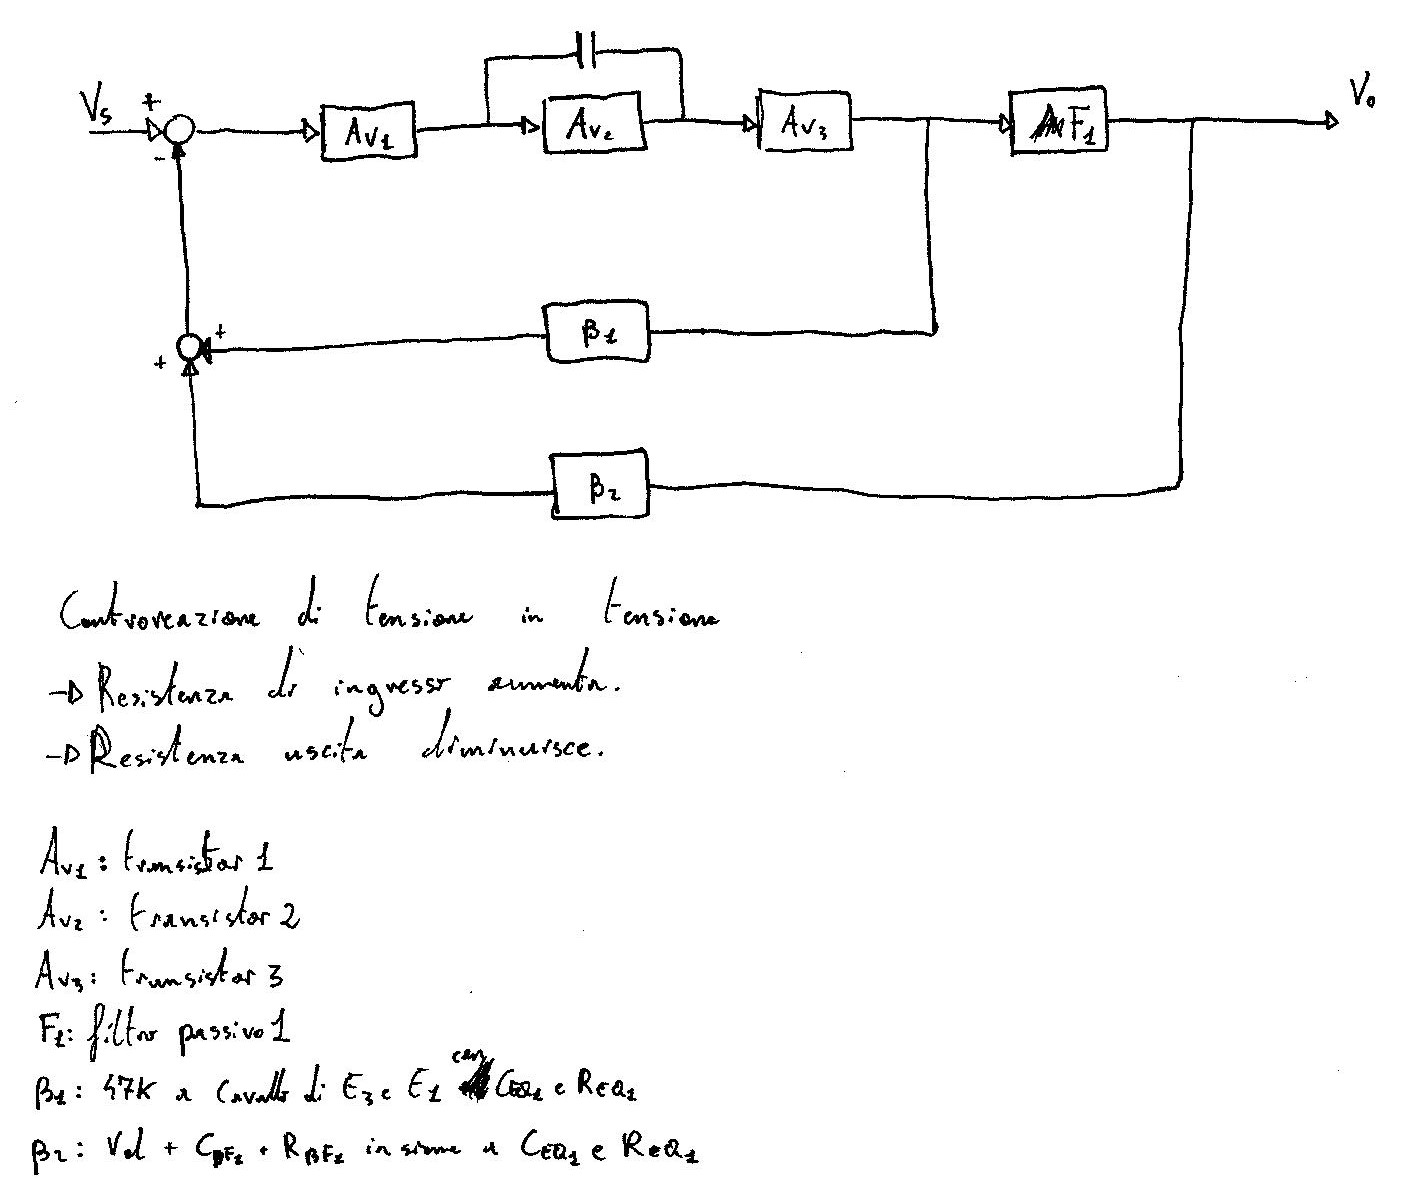 Vs + Av1 Av2 Av3 F1 Vo
-
β1 +
+
β2
Controreazione di tensione in tensione
→ Resistenza di ingresso aumenta.
→ Resistenza uscita diminuisce.
Av1: transistor 1
Av2: transistor 2
Av3: transistor 3
F1: filtro passivo 1
β1: 47K a cavallo di E3 e E1 con CEQ1 e REQ1
β2: Vol + CβF1 + RβF1 insieme a CEQ1 e REQ1